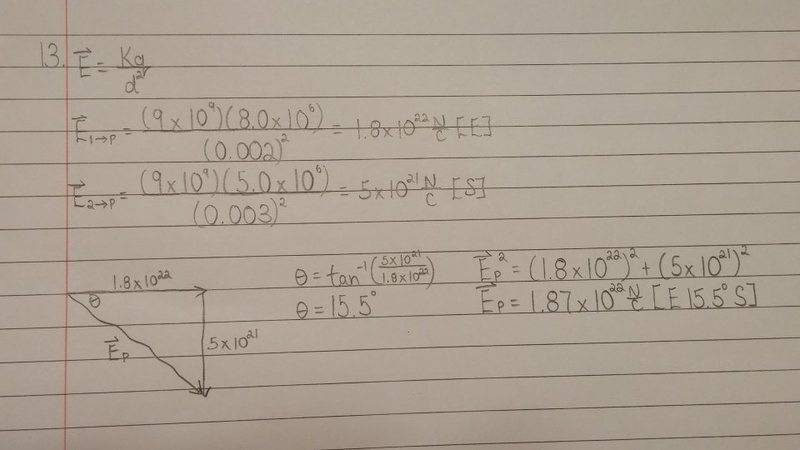 13. E⃗ = Kq/d²
E⃗₁→P = (9×10⁹)(8.0×10⁶)/(0.002)² = 1.8×10²² N/C [E]
E⃗₂→P = (9×10⁹)(5.0×10⁶)/(0.003)² = 5×10²¹ N/C [S]
1.8×10²²
θ
E⃗p
5×10²¹
θ = tan⁻¹(5×10²¹/1.8×10²²)
θ = 15.5°
E⃗p² = (1.8×10²²)² + (5×10²¹)²
E⃗p = 1.87×10²² N/C [E 15.5° S]